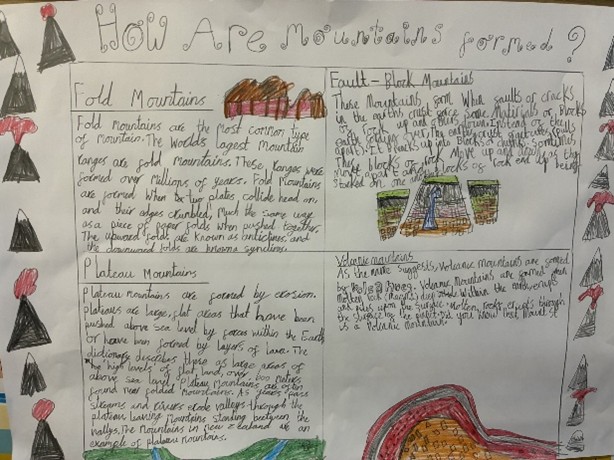 How Are mountains formed?
Fold Mountains
Fold mountains are the most common type
of mountain. The Worlds lagest mountain
ranges are fold mountains. These ranges were
formed over millions of years. Fold Mountains
are formed When two plates collide head on,
and their edges crumbled, Much the same way
as a piece of paper folds when pushed together.
The upward folds are known as anticlines, and
the downward folds are known synclins.
Fault-Block Mountains
These Mountains form When faults or cracks
in the earths crust force Some Materials or Blocks
of rock up and others down. Instead of the
earth folding over, The earths crust
It breaks up into Blocks or chunks. Somtimes
These blocks of rock Move up and down, as they
move apart and blocks of rock end up being
stacked on one
Plateau Mountains
Plateau mountains are formed by erosion.
Plateaus are large, flat areas that have been
pushed above sea level by forces within the Earth,
or have been formed by layers of lava. The
dictionary describes these as large areas of
high levels of flat land, over 600 meters
above sea level. Plateau Mountains are often
found near folded mountains. As years pass
streams and rivers erode valleys through the
plateau leaving mountains standing between the
vallys. The mountains in new zealand are an
example of plateau mountains.
Volcanic mountains
As the name suggests, Volcanic mountains are formed
by Volcanic Mountains are formed when
molten rock (magma) deep inside Within the earth, erupts
and piles upon the surface
the surface of the earth. Did you know that Mount St
is a Volcanic mountain.